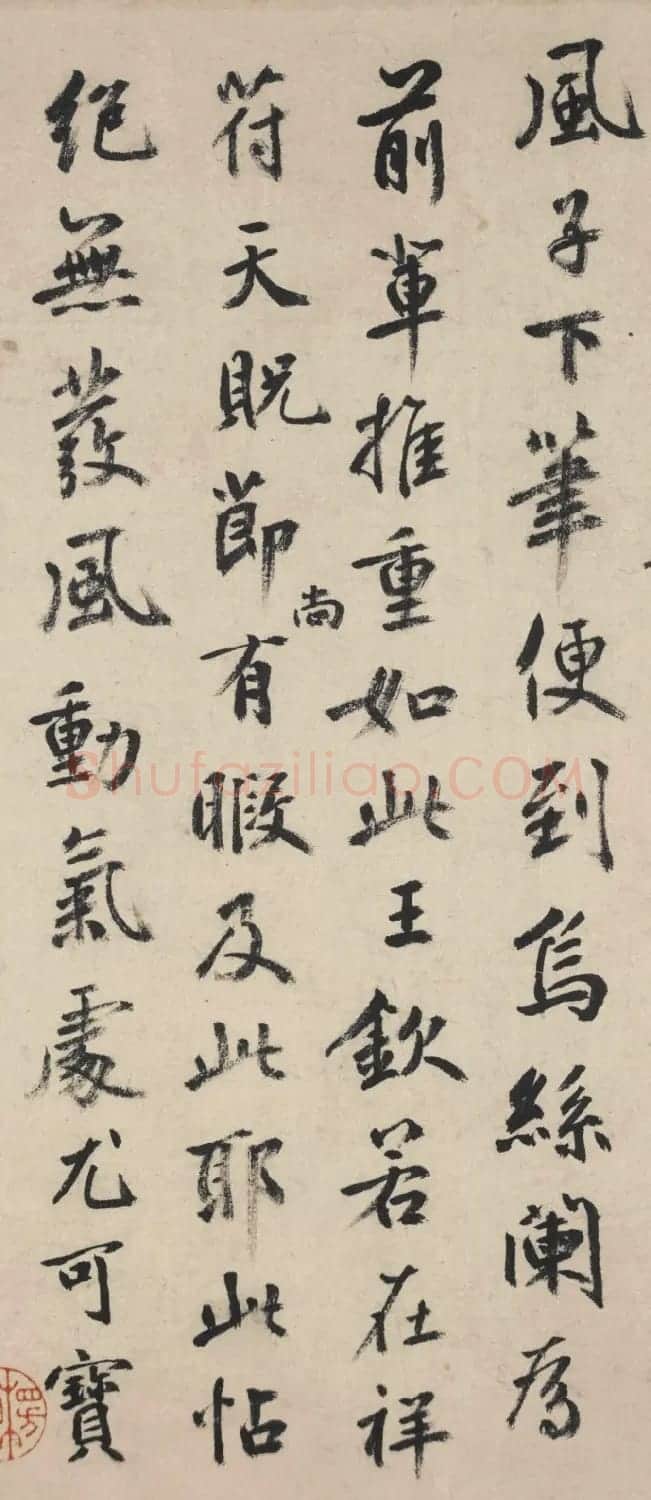 風子下筆便到烏絲闌為
前輩推重如此王欽若在祥
符天貺節尚有暇及此耶此帖
絕無發風動氣處尤可寶
Shufaziliao.COM